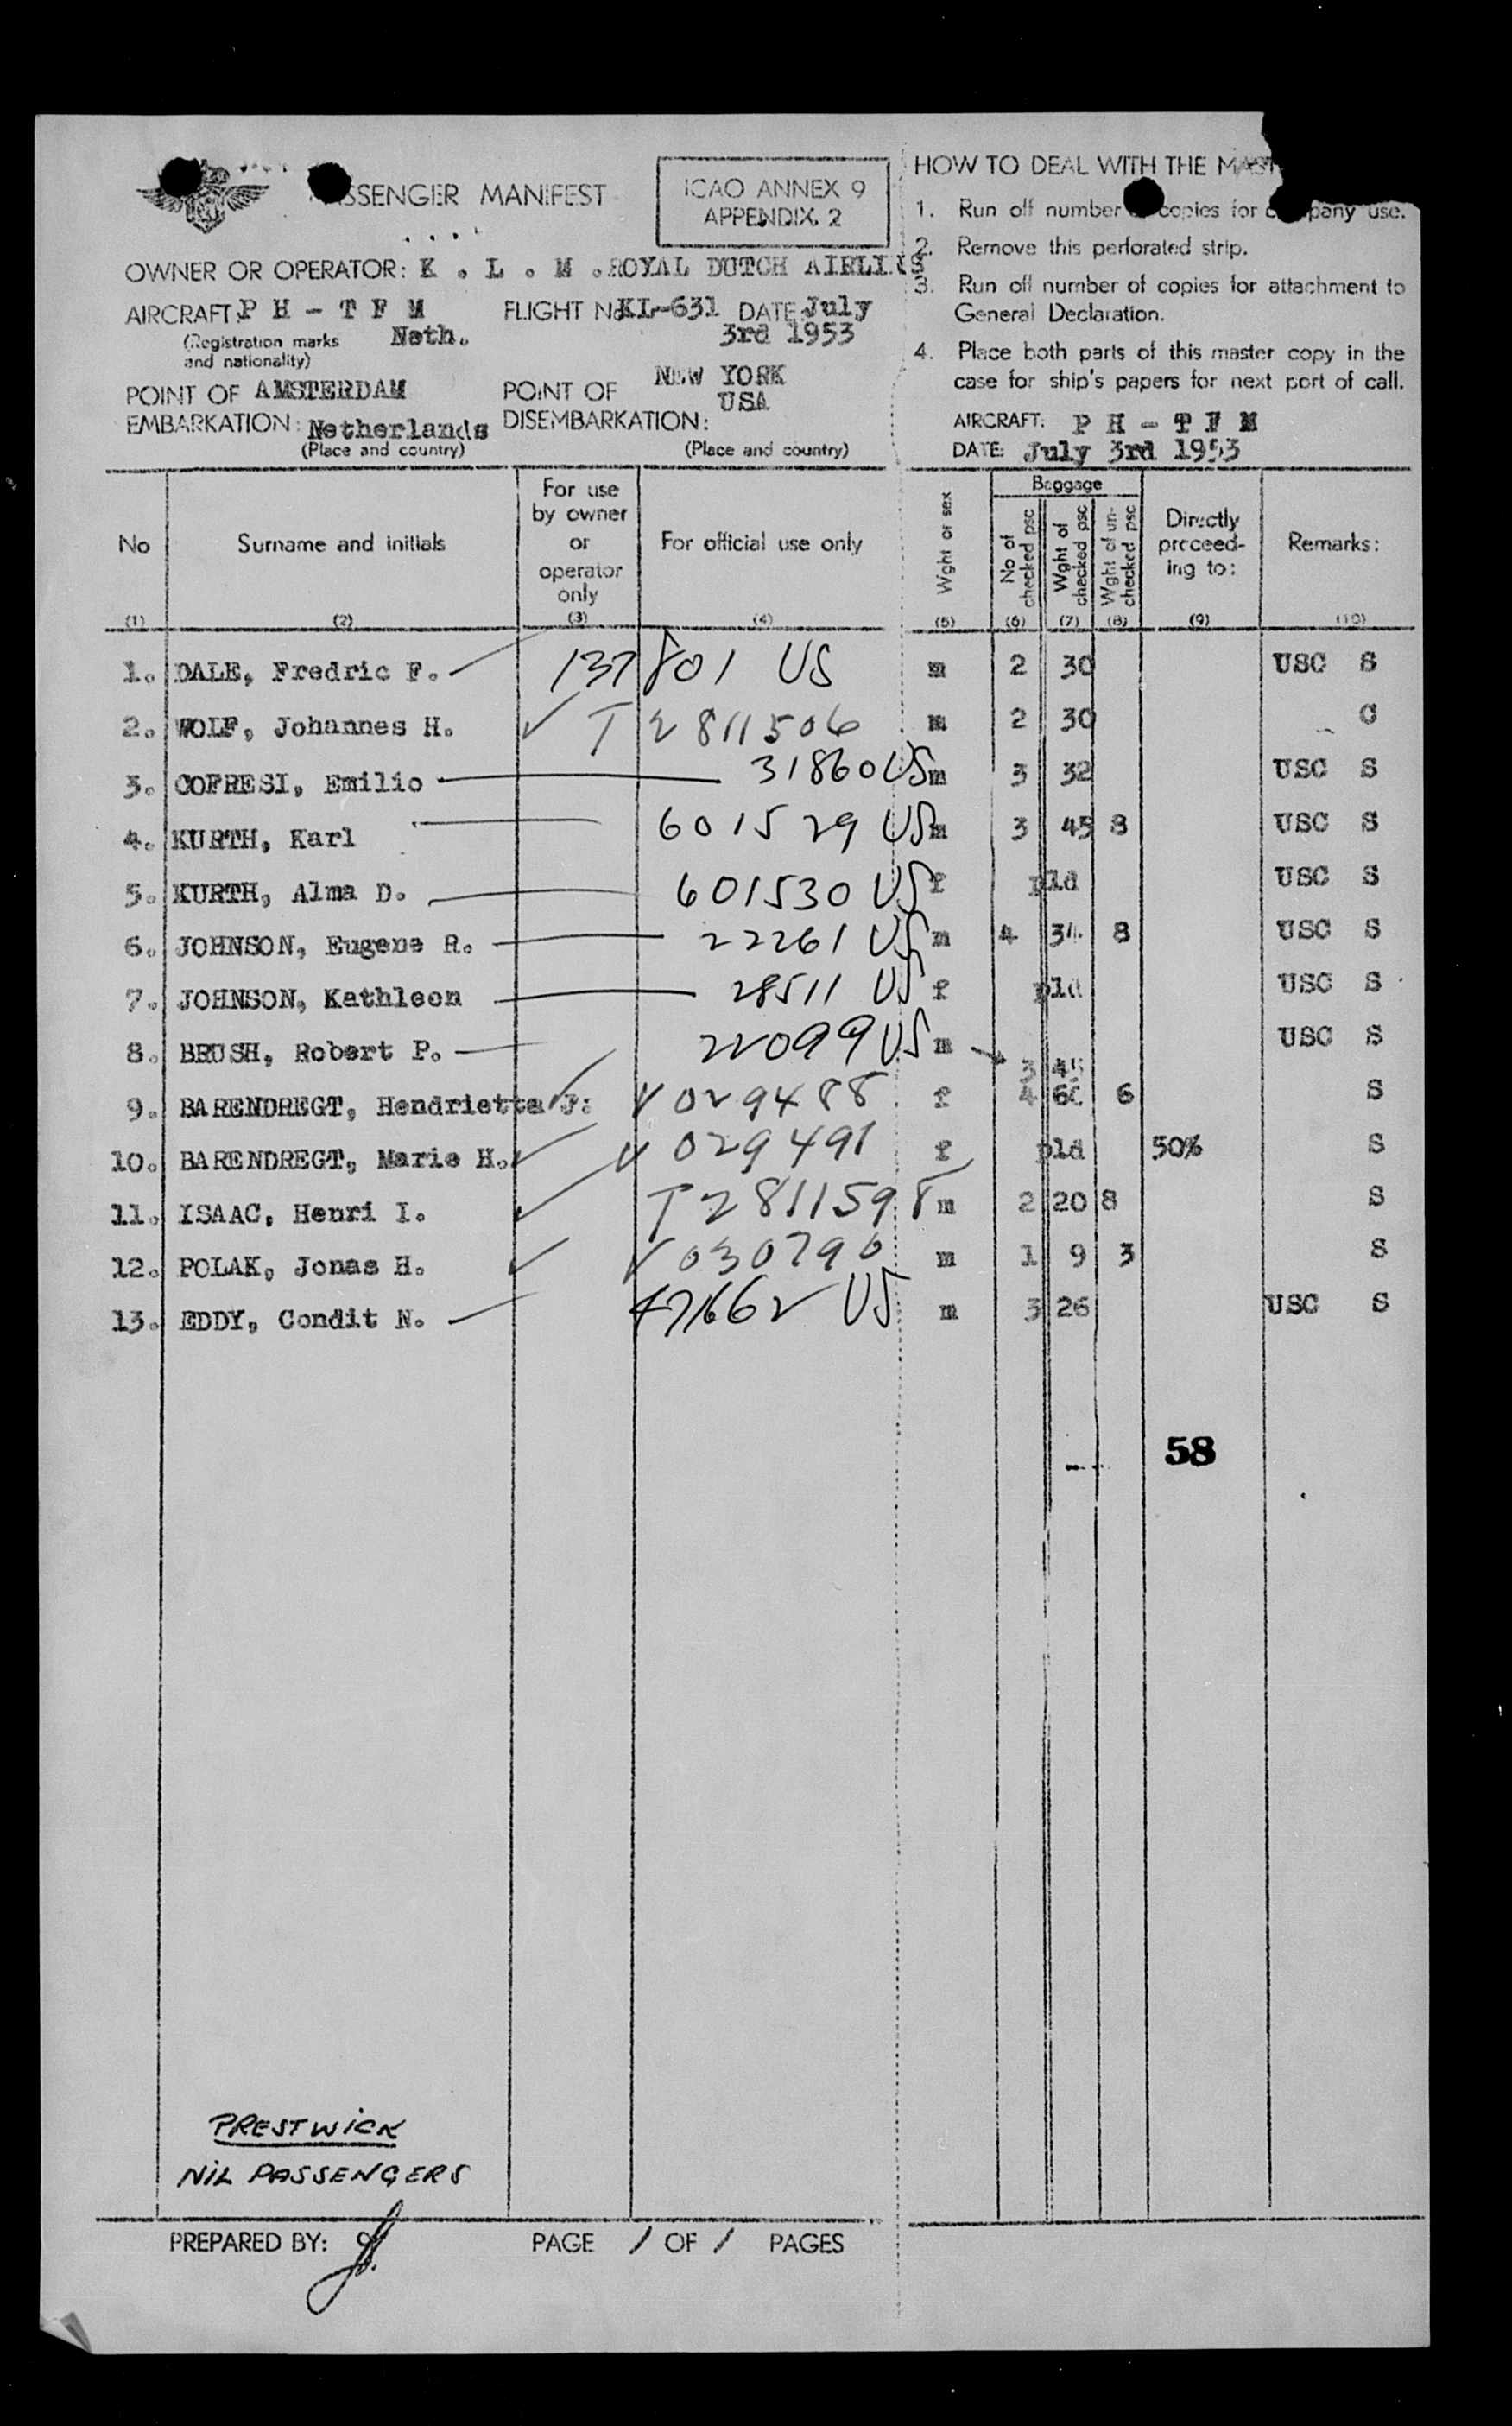 PASSENGER MANIFEST
ICAO ANNEX 9
APPENDIX 2
OWNER OR OPERATOR: K . L . M . ROYAL DUTCH AIRLINES
AIRCRAFT: P H - T F M FLIGHT No KL-631 DATE: July
(Registration marks Neth. 3rd 1953
and nationality)
POINT OF AMSTERDAM POINT OF NEW YORK
EMBARKATION: Netherlands DISEMBARKATION: USA
(Place and country) (Place and country)
HOW TO DEAL WITH THE MAST
1. Run off number copies for company use.
2. Remove this perforated strip.
3. Run off number of copies for attachment to
General Declaration.
4. Place both parts of this master copy in the
case for ship's papers for next port of call.
AIRCRAFT: P H - T F M
DATE: July 3rd 1953
No Surname and initials For use by owner or operator only For official use only Wght or sex Baggage No of checked psc Wght of checked psc Wght of un-checked psc Directly proceed-ing to: Remarks:
(1) (2) (3) (4) (5) (6) (7) (8) (9) (10)
1. DALE, Fredric F. 137801 US m 2 30 USC S
2. WOLF, Johannes H. ✓ T2811506 m 2 30 C
3. COFRESI, Emilio 31860 US m 3 32 USC S
4. KURTH, Karl 601529 US m 3 45 8 USC S
5. KURTH, Alma D. 601530 US f pld USC S
6. JOHNSON, Eugene R. 22261 US m 4 34 8 USC S
7. JOHNSON, Kathleen 28511 US f pld USC S
8. BRUSH, Robert P. 22099 US m 3 45 USC S
9. BARENDREGT, Hendrietta J: ✓ V029488 f 4 60 6 S
10. BARENDREGT, Marie H. ✓ V029491 f pld 50% S
11. ISAAC, Henri I. ✓ T2811598 m 2 20 8 S
12. POLAK, Jonas H. ✓ V030790 m 1 9 3 S
13. EDDY, Condit N. 471662 US m 3 26 USC S
58
PRESTWICK
NIL PASSENGERS
PREPARED BY: PAGE 1 OF 1 PAGES